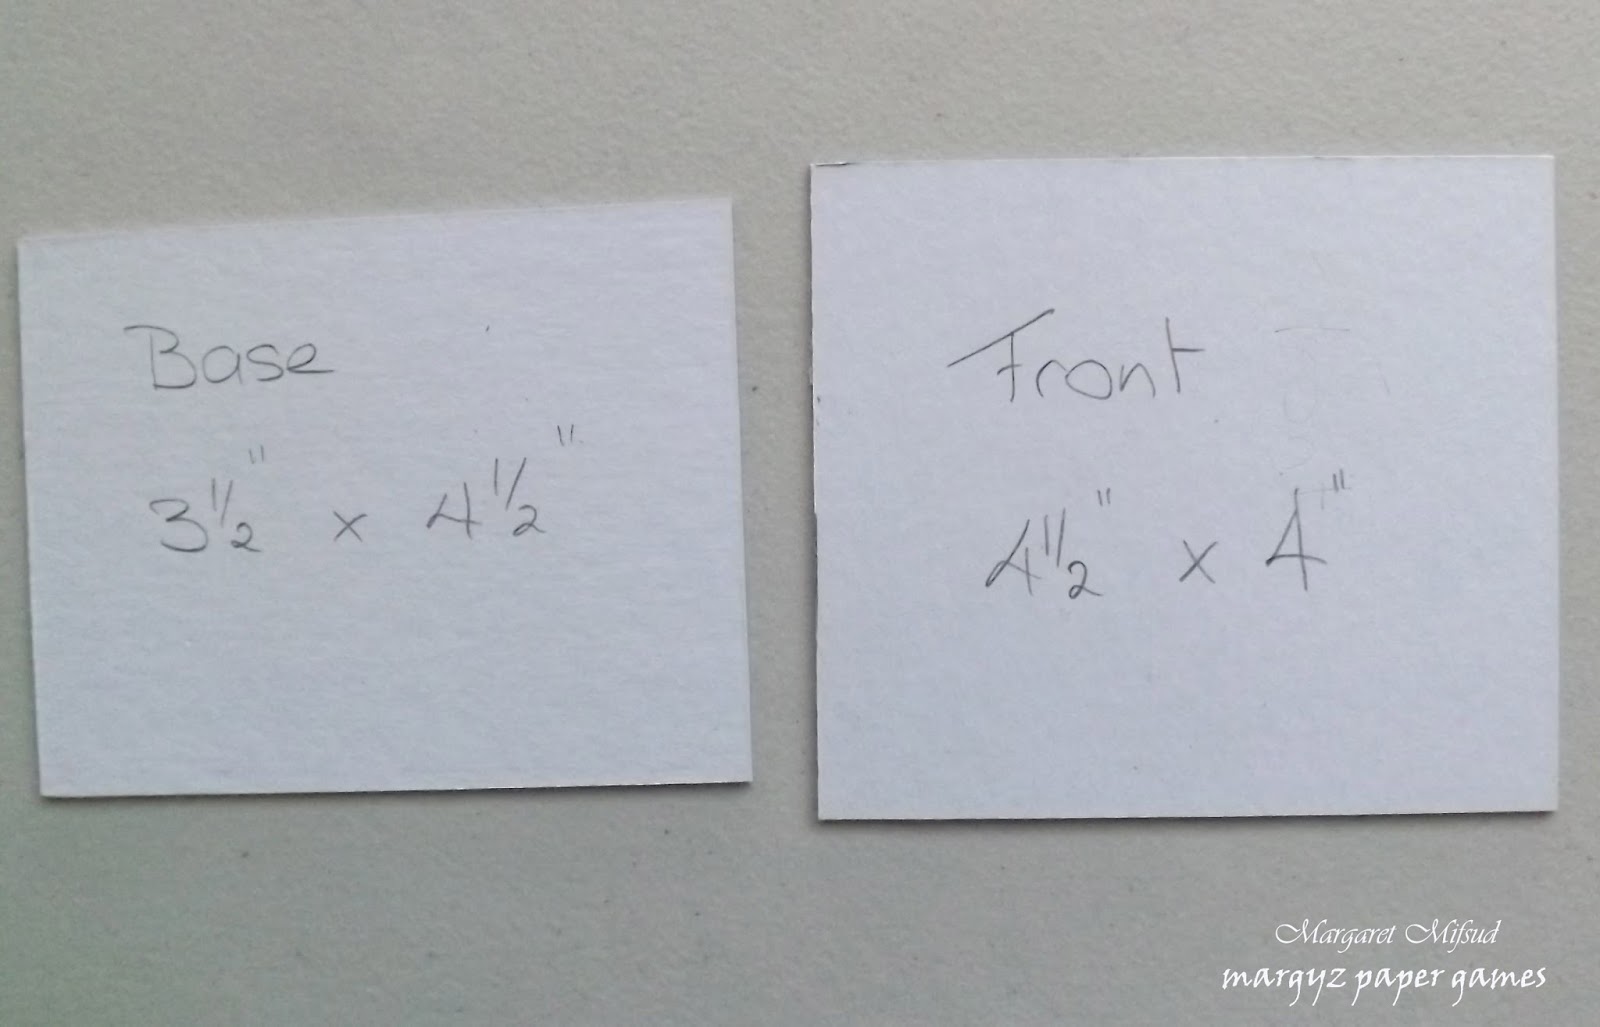 Base
3 1/2" x 4 1/2"
Front
4 1/2" x 4"
Margaret Mifsud
margyz paper games